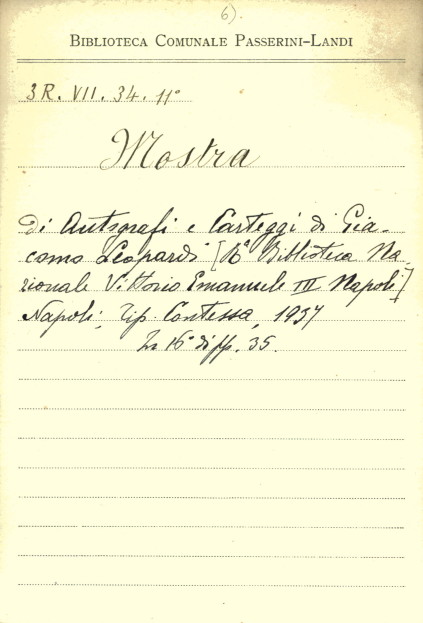 6).
BIBLIOTECA COMUNALE PASSERINI-LANDI
3R. VII. 34. 11°
Mostra
Di Autografi e Carteggi di Gia-
como Leopardi [Rª Biblioteca Na-
zionale Vittorio Emanuele III Napoli]
Napoli, Tip. Contessa, 1937
In 16° di pp. 35.